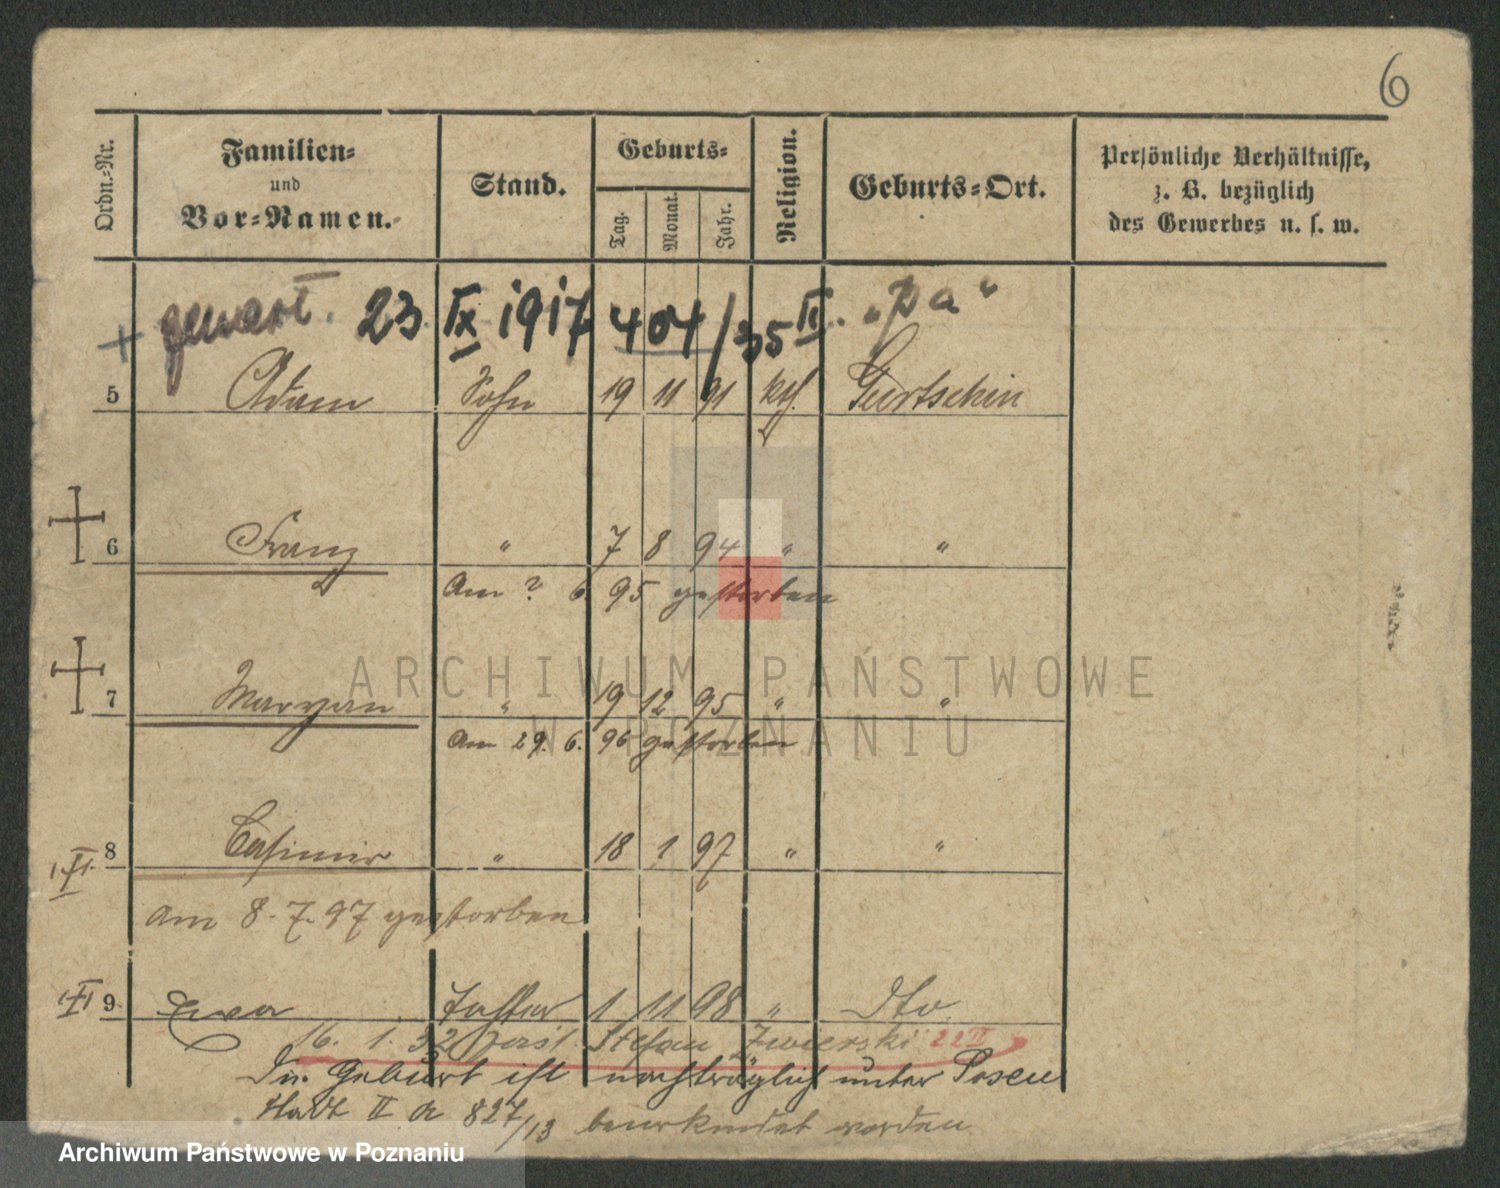 6
Ordn.-Nr. Familien- und Vor-Namen. Stand. Geburts- Tag. Monat. Jahr. Religion. Geburts-Ort. Persönliche Verhältnisse, z. B. bezüglich des Gewerbes u. s. w.
+ 23 IX 1917 404/35 II. „Pa“
5 Adam Sohn 19 11 91 kth. Gurtschin
6 Franz " 7 8 94 " "
Am ? 6. 95 gestorben
7 Maryan " 19 12 95 " "
Am 29. 6. 96 gestorben
8 Casimir " 18 1 97 " "
am 8. 7. 97 gestorben
9 Ewa Tochter 1 11 98 " dto.
16. 1. 32 Stefan Zwierski 22 II
Die Geburt ist nachträglich unter Posen
Stadt II 827/13 beurkundet worden
ARCHIWUM PAŃSTWOWE
W POZNANIU
Archiwum Państwowe w Poznaniu